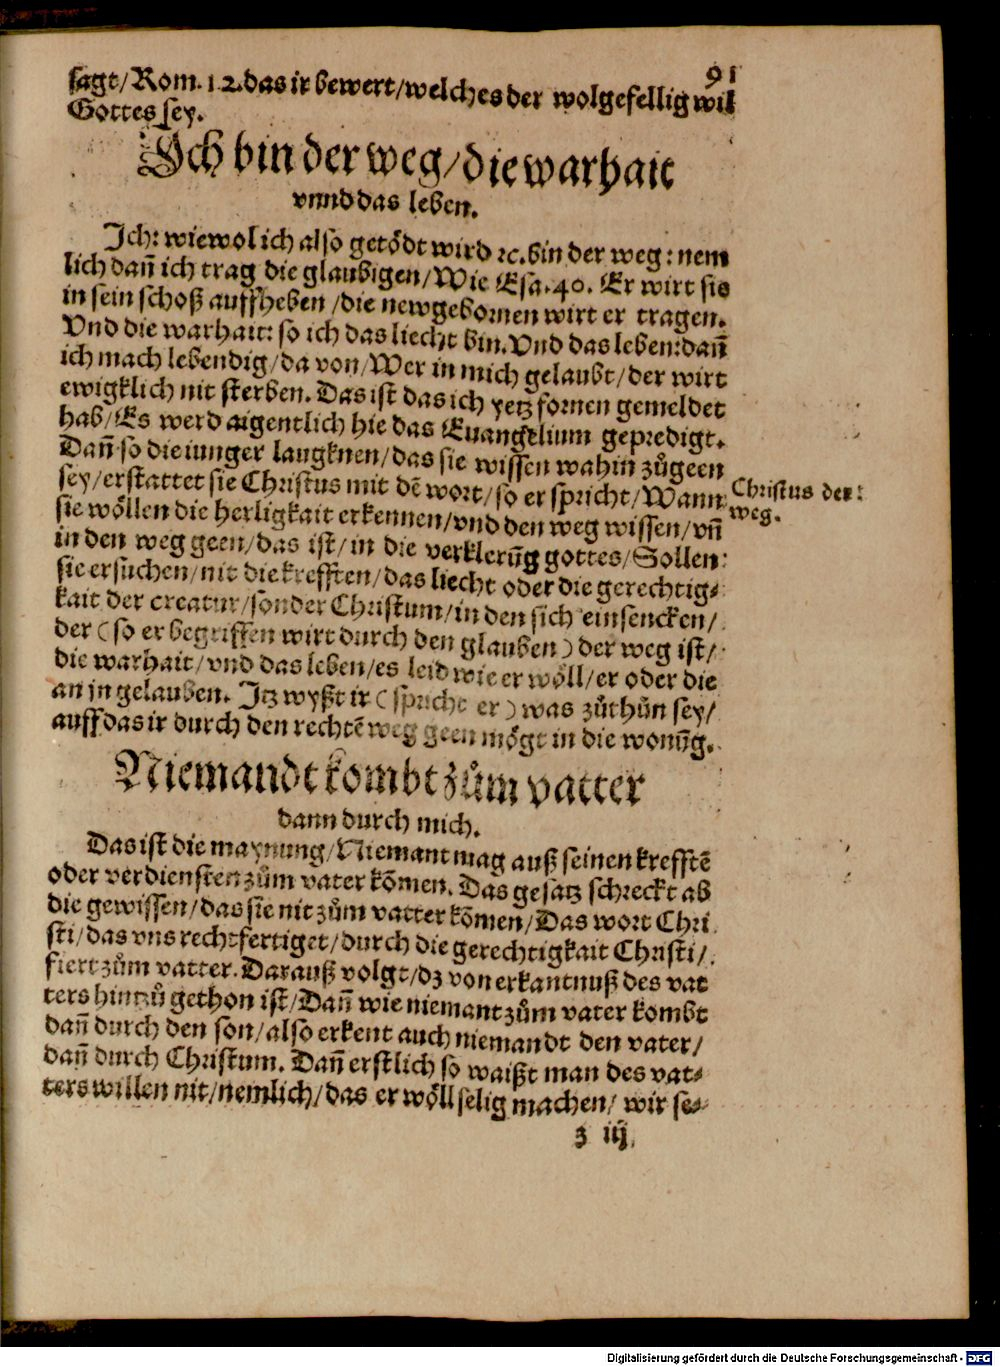 91
sagt/Rom. 12. das ir bewert/welches der wolgefellig wil
Gottes sey.
Ich bin der weg/die warhait
vnnd das leben.
Ich: wiewol ich also getödt wird ꝛc. bin der weg: nem
lich dañ ich trag die glaubigen/Wie Esa. 40. Er wirt sie
in sein schoß auffheben/die newgebornen wirt er tragen.
Vnd die warhait: so ich das liecht bin. Vnd das leben: dañ
ich mach lebendig/da von/Wer in mich gelaubt/der wirt
ewigklich nit sterben. Das ist das ich yetz fornen gemeldet
hab/Es werd aigentlich hie das Euangelium gepredigt.
Dañ so die iunger laugknen/das sie wissen wahin zůgeen
sey/erstattet sie Christus mit dē wort/so er spricht/Wann
sie wöllen die herligkait erkennen/vnd den weg wissen/vñ
in den weg geen/das ist/in die verklerũg gottes/Sollen
sie ersuchen/nit die krefften/das liecht oder die gerechtig⸗
kait der creatur/sonder Christum/in den sich einsencken/
der (so er begriffen wirt durch den glauben) der weg ist/
die warhait/vnd das leben/es leid wie er wöll/er oder die
an jn gelauben. Itz wyßt ir (spricht er) was zůthůn sey/
auff das ir durch den rechtē weg geen mögt in die wonũg.
Christus der
weg.
Niemandt kombt zům vatter
dann durch mich.
Das ist die maynung/Niemant mag auß seinen krefftē
oder verdiensten zům vater kōmen. Das gesatz schreckt ab
die gewissen/das sie nit zům vatter kōmen/Das wort Chri
sti/das vns rechtfertiget/durch die gerechtigkait Christi/
fiert zům vatter. Darauß volgt/dz von erkantnuß des vat
ters hintzů gethon ist/Dañ wie niemant zům vater kombt
dañ durch den son/also erkent auch niemandt den vater/
dañ durch Christum. Dañ erstlich so waißt man des vat⸗
ters willen nit/nemlich/das er wöll selig machen/wir se⸗
z iij
Digitalisierung gefördert durch die Deutsche Forschungsgemeinschaft - DFG